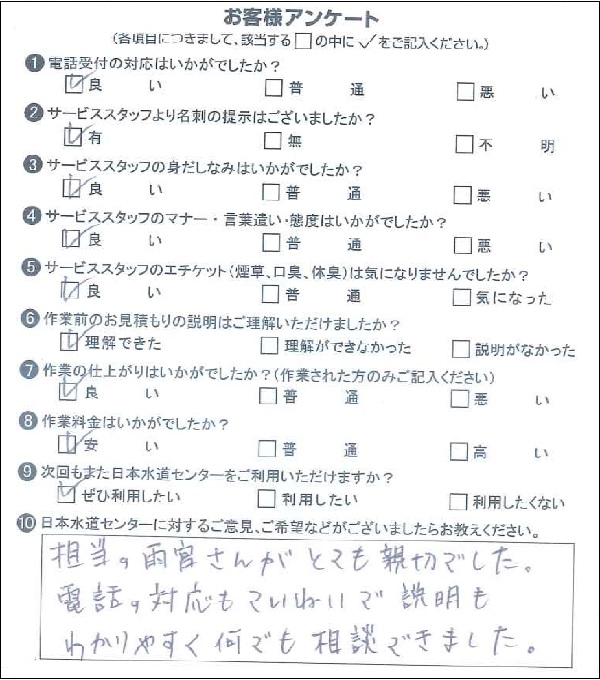 お客様アンケート
(各項目につきまして、該当する□の中に✓をご記入ください。)
❶ 電話受付の対応はいかがでしたか?
☑良い □普通 □悪い
❷ サービススタッフより名刺の提示はございましたか?
☑有 □無 □不明
❸ サービススタッフの身だしなみはいかがでしたか?
☑良い □普通 □悪い
❹ サービススタッフのマナー・言葉遣い・態度はいかがでしたか?
☑良い □普通 □悪い
❺ サービススタッフのエチケット(煙草、口臭、体臭)は気になりませんでしたか?
☑良い □普通 □気になった
❻ 作業前のお見積もりの説明はご理解いただけましたか?
☑理解できた □理解ができなかった □説明がなかった
❼ 作業の仕上がりはいかがでしたか?(作業された方のみご記入ください)
☑良い □普通 □悪い
❽ 作業料金はいかがでしたか?
☑安い □普通 □高い
❾ 次回もまた日本水道センターをご利用いただけますか?
☑ぜひ利用したい □利用したい □利用したくない
❿ 日本水道センターに対するご意見、ご希望などがございましたらお教えください。
担当の雨宮さんがとても親切でした。
電話の対応もていねいで説明も
わかりやすく何でも相談できました。